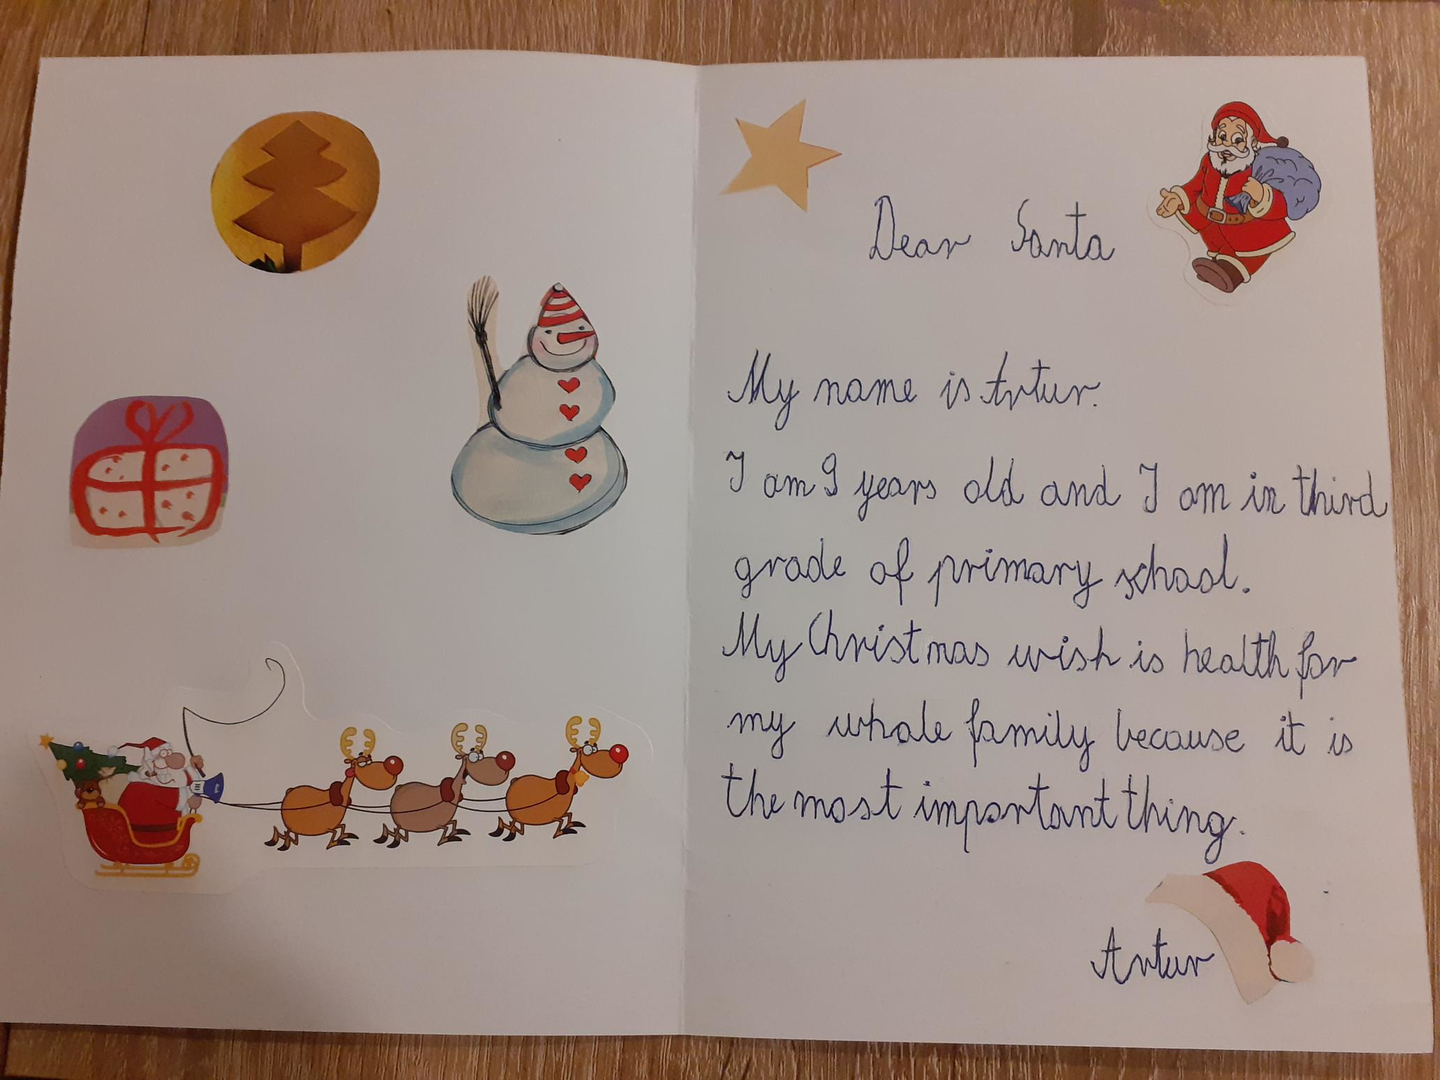 Dear Santa
My name is Artur.
I am 9 years old and I am in third
grade of primary school.
My Christmas wish is health for
my whole family because it is
the most important thing.
Artur